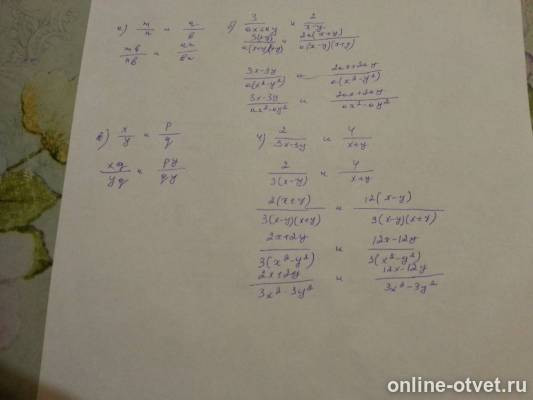 а) m/n и a/b
mb/nb и an/bn
б) 3/(ax+ay) и 2/(x-y)
3(x-y)/(a(x+y)(x-y)) и 2a(x+y)/(a(x-y)(x+y))
(3x-3y)/(a(x²-y²)) и (2ax+2ay)/(a(x²-y²))
(3x-3y)/(ax²-ay²) и (2ax+2ay)/(ax²-ay²)
в) x/y и p/q
xq/yq и py/qy
4) 2/(3x-3y) и 4/(x+y)
2/(3(x-y)) и 4/(x+y)
2(x+y)/(3(x-y)(x+y)) и 12(x-y)/(3(x-y)(x+y))
(2x+2y)/(3(x²-y²)) и (12x-12y)/(3(x²-y²))
(2x+2y)/(3x²-3y²) и (12x-12y)/(3x²-3y²)
online-otvet.ru